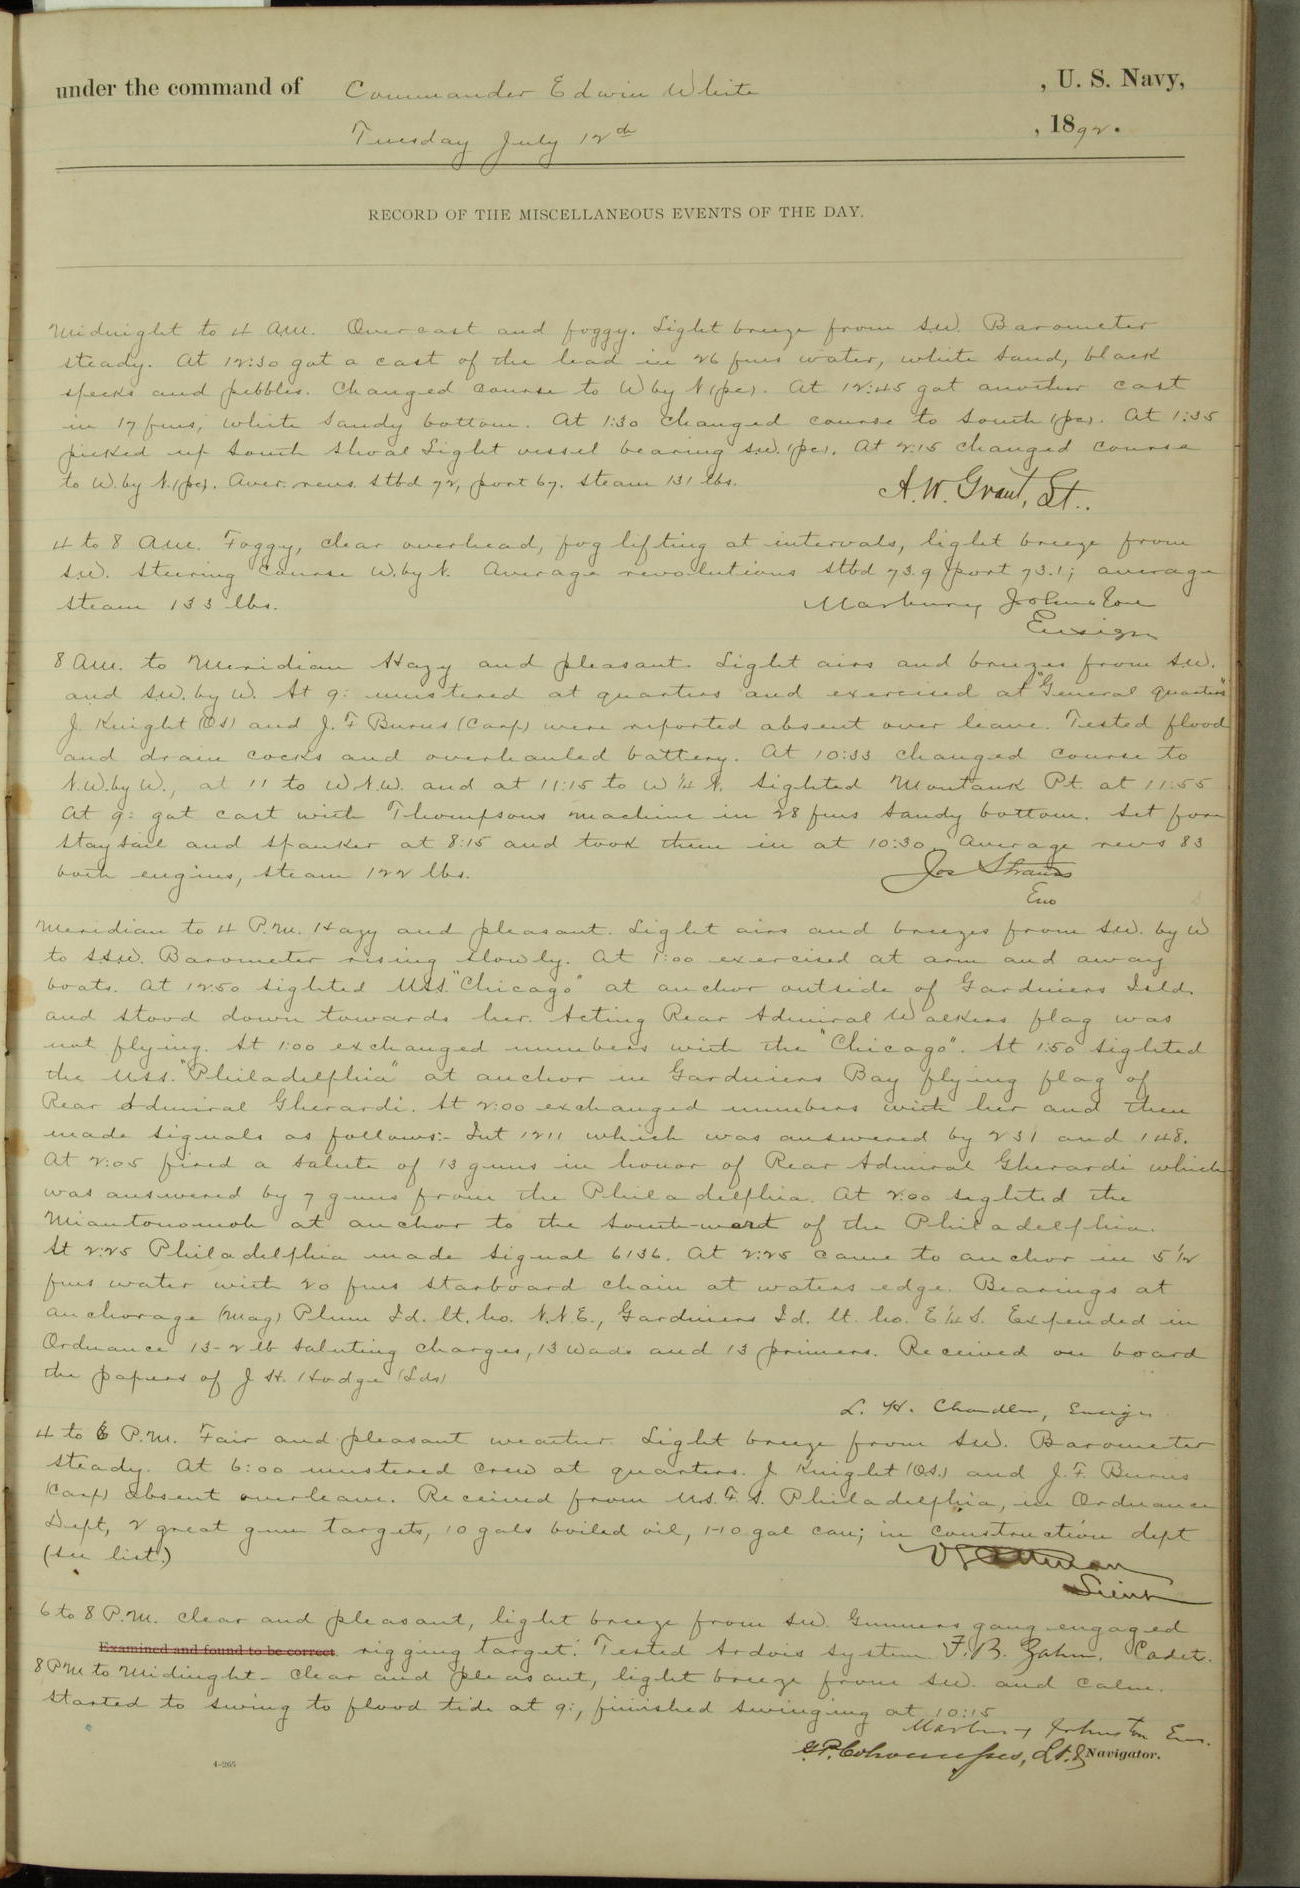 under the command of Commander Edwin White , U. S. Navy,
Tuesday July 12th , 1892.
RECORD OF THE MISCELLANEOUS EVENTS OF THE DAY.
Midnight to 4 AM. Overcast and foggy. Light breeze from S.W. Barometer
steady. At 12:30 got a cast of the lead in 26 fms water, white sand, black
specks and pebbles. Changed course to W by N (pc). At 12:45 got another cast
in 17 fms, white sandy bottom. At 1:30 changed course to South (pc). At 1:35
picked up South Shoal Light vessel bearing S.W. (pc). At 2:15 changed course
to W. by N. (pc). Aver. revs. stbd 72, port 67. Steam 131 lbs.
A. W. Grant, Lt..
4 to 8 AM. Foggy, clear overhead, fog lifting at intervals, light breeze from
S.W. Steering course W. by N. Average revolutions stbd 73.9 port 73.1; average
steam 133 lbs.
Marbury Johnston
Ensign
8 AM. to Meridian Hazy and pleasant. Light airs and breezes from S.W.
and S.W. by W. At 9: mustered at quarters and exercised at "General quarters"
J. Knight (OS) and J. F Burns (Carp) were reported absent over leave. Tested flood
and drain cocks and overhauled battery. At 10:33 changed course to
N.W. by W., at 11 to W.N.W. and at 11:15 to W 1/4 N. Sighted Montauk Pt. at 11:55
At 9: got cast with Thompsons machine in 28 fms sandy bottom. Set fore
stay sail and spanker at 8:15 and took them in at 10:30. Average revs 83
both engines, steam 122 lbs.
Jos Strauss
Ens
Meridian to 4 P.M. Hazy and pleasant. Light airs and breezes from S.W. by W
to S.S.W. Barometer rising slowly. At 1:00 exercised at arm and away
boats. At 12:50 sighted U.S.S. "Chicago" at anchor outside of Gardiners Isld.
and stood down towards her. Acting Rear Admiral Walkers flag was
not flying. At 1:00 exchanged numbers with the "Chicago". At 1:50 sighted
the U.S.S. "Philadelphia" at anchor in Gardiners Bay flying flag of
Rear Admiral Gherardi. At 2:00 exchanged numbers with her and then
made signals as follows:- Int 1211 which was answered by 231 and 148.
At 2:05 fired a salute of 13 guns in honor of Rear Admiral Gherardi which
was answered by 7 guns from the Philadelphia. At 2:00 sighted the
Miantonomoh at anchor to the south-ward of the Philadelphia.
At 2:25 Philadelphia made signal 6136. At 2:25 came to anchor in 5 1/2
fms water with 20 fms starboard chain at waters edge. Bearings at
anchorage (Mag) Plum Id. lt. ho. N.N.E., Gardiners Id. lt. ho. E 1/4 S. Expended in
Ordnance 13-2 lb saluting charges, 13 wads and 13 primers. Received on board
the papers of J H. Hodge (Lds)
L. H. Chandler, Ensign
4 to 6 P.M. Fair and pleasant weather. Light breeze from S.W. Barometer
steady. At 6:00 mustered crew at quarters. J Knight (OS.) and J. F. Burns
(Carp) absent overleave. Received from U.S. F. S. Philadelphia, in Ordnance
Dept, 2 great gun targets, 10 gals boiled oil, 1-10 gal can; in construction dept
(see list.)
Lieut
6 to 8 P.M. Clear and pleasant, light breeze from S.W. Gunners gang engaged
Examined and found to be correct. rigging target. Tested Ardois system F. B. Zahm, Cadet.
8 PM to Midnight - Clear and pleasant, light breeze from S.W. and calm.
Started to swing to flood tide at 9:, finished swinging at 10:15
Marbury Johnston Ens.
Lt. & Navigator.
4-265